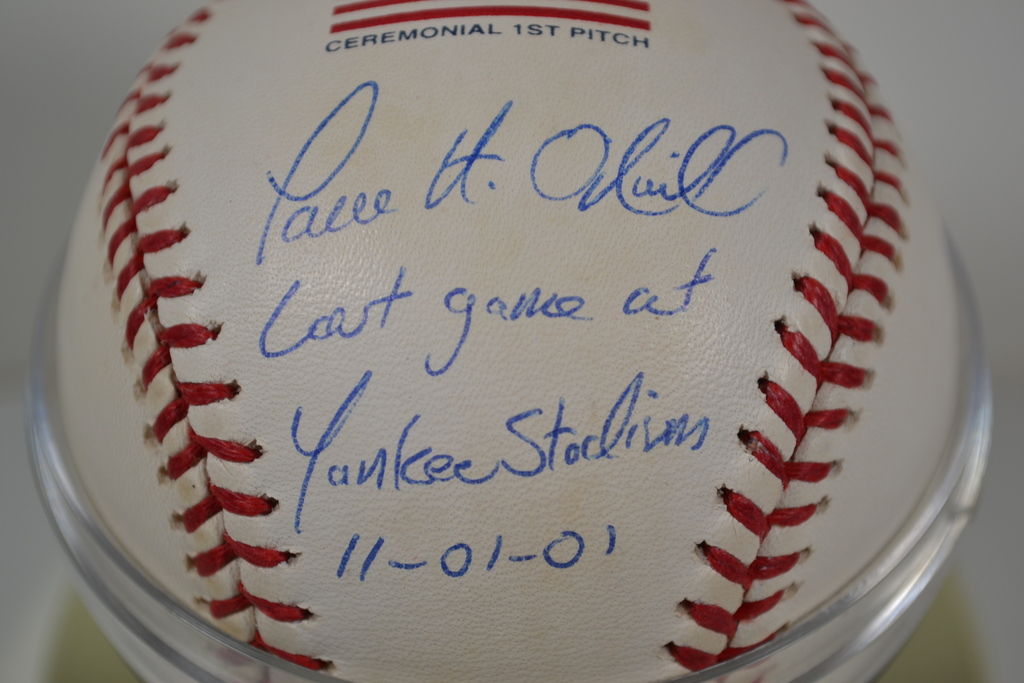 CEREMONIAL 1ST PITCH
Paul H. O'Neill
Last game at
Yankee Stadium
11-01-01